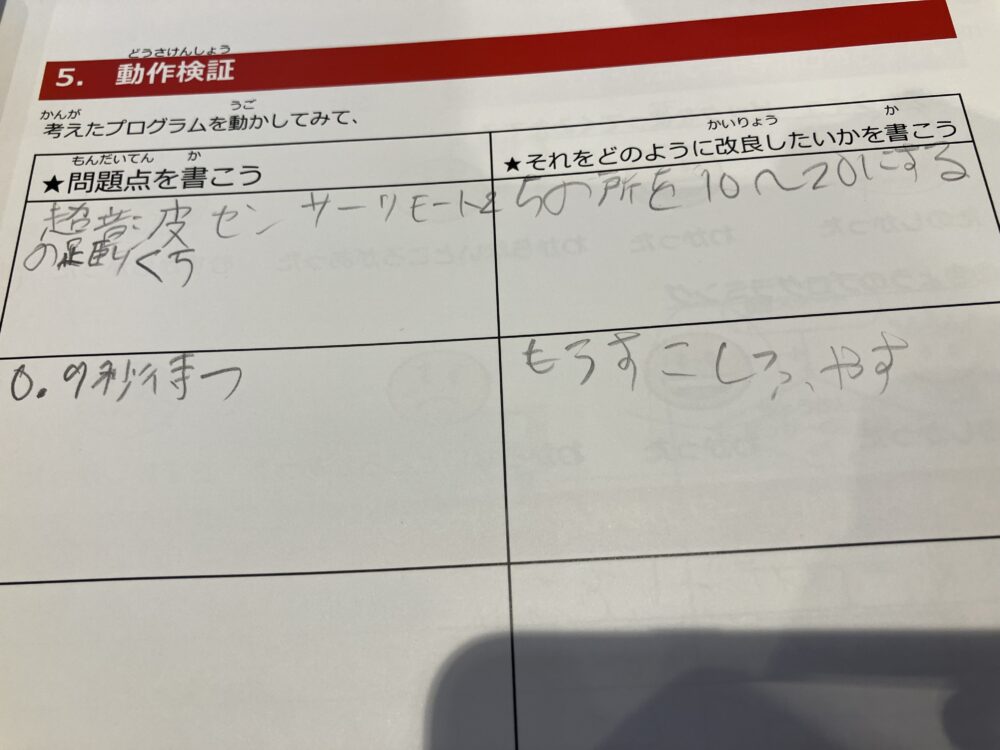 どうさけんしょう
5. 動作検証
かんが うご
考えたプログラムを動かしてみて、
もんだいてん か
★問題点を書こう
かいりょう か
★それをどのように改良したいかを書こう
超音皮センサーリモートと
の足巨りくち
ちの所を10〜20にする
0.9秒待つ
もうすこしふやす